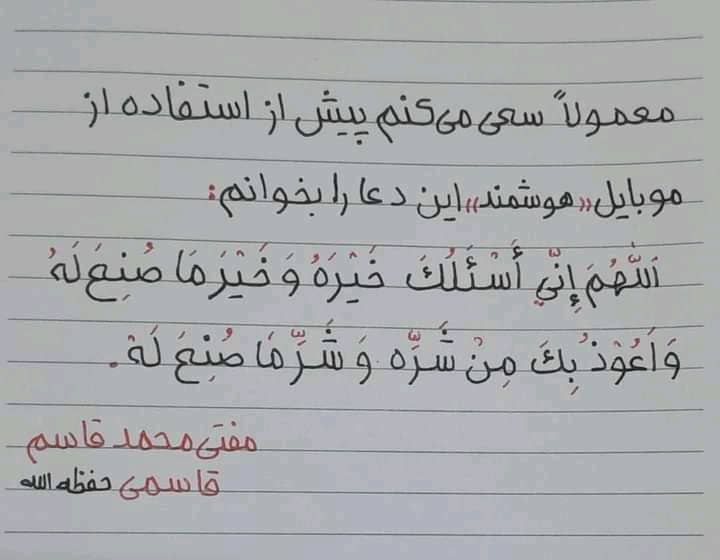 معمولاً سعی می‌کنم پیش از استفاده از
موبایل «هوشمند» این دعا را بخوانم:
اَللّٰهُمَ إِنِّي أَسْئَلُكَ خَيْرَهُ وَ خَيْرَ مَا صُنِعَ لَهُ
وَ اَعُوْذُ بِكَ مِنْ شَرِّه وَ شَرِّ مَا صُنِعَ لَهُ.
مفتی محمد قاسم
قاسمی حفظه الله